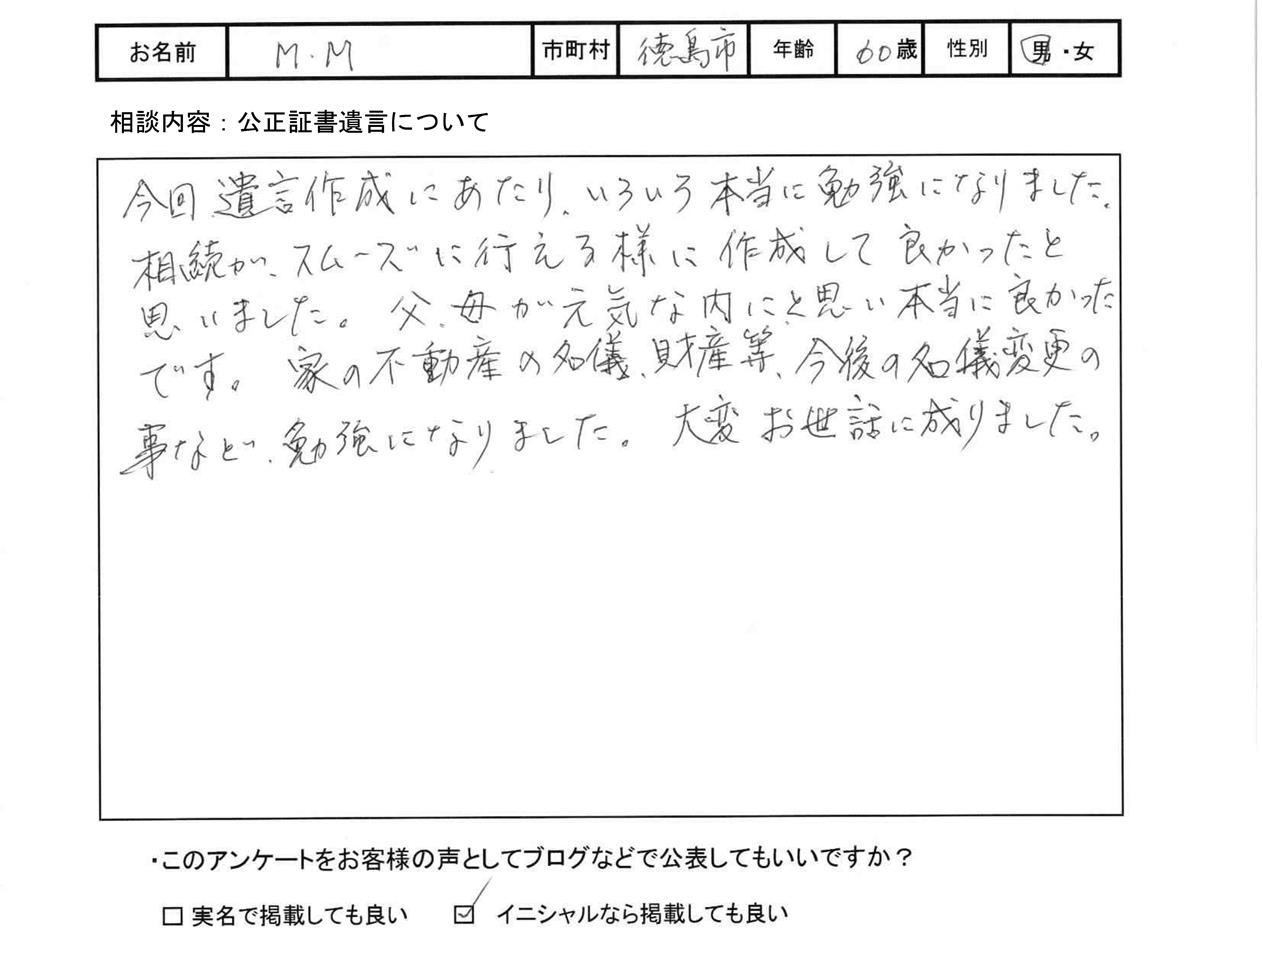 お名前 M.M 市町村 徳島市 年齢 60歳 性別 男・女
相談内容：公正証書遺言について
今回、遺言作成にあたり、いろいろ本当に勉強になりました。
相続が、スムーズに行える様に作成して良かったと
思いました。父、母が元気な内にと思い本当に良かった
です。家の不動産の名儀、財産等、今後の名儀変更の
事など、勉強になりました。大変お世話に成りました。
・このアンケートをお客様の声としてブログなどで公表してもいいですか？
□ 実名で掲載しても良い ☑ イニシャルなら掲載しても良い